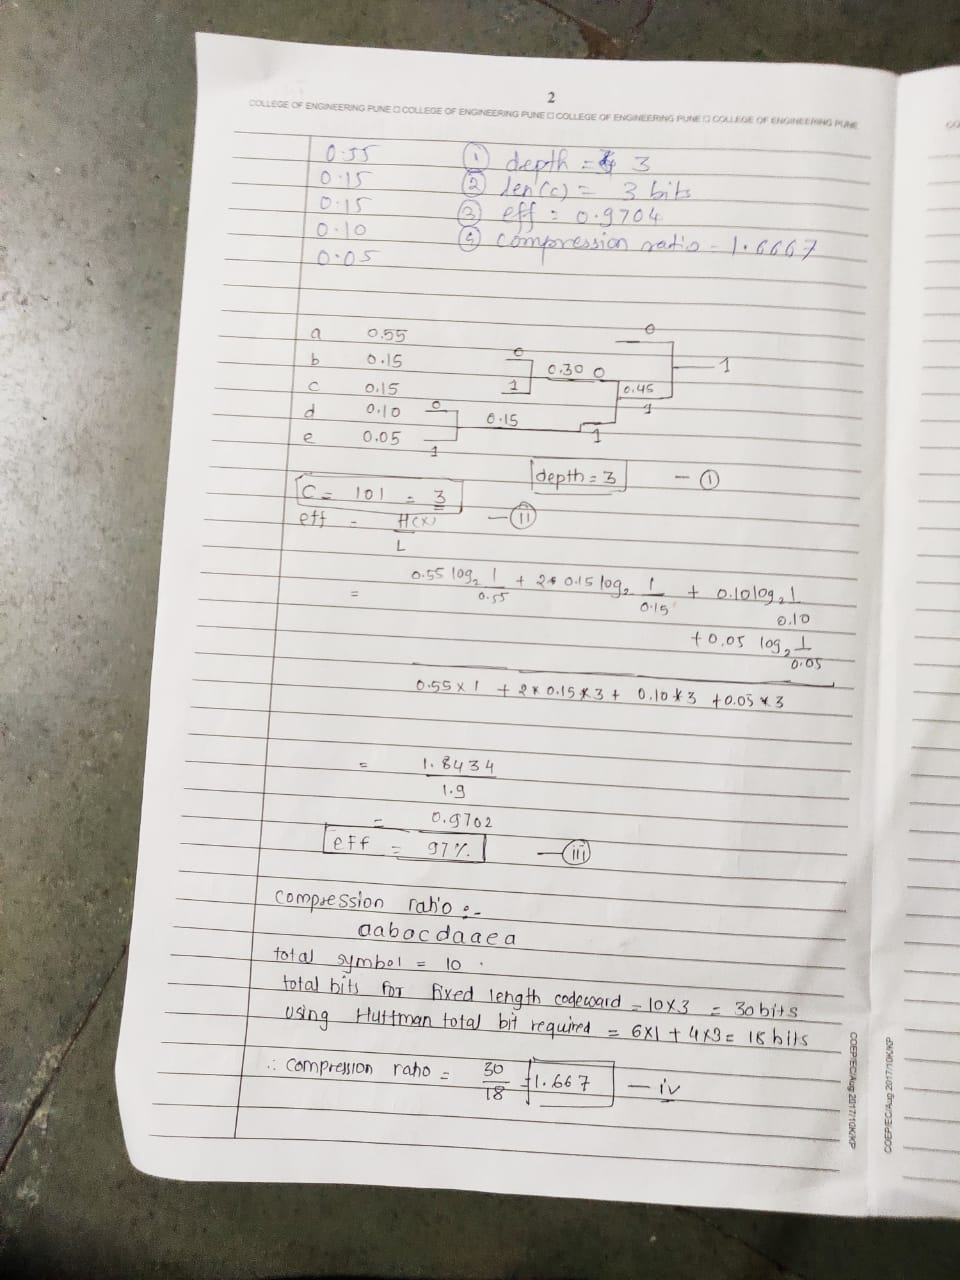 2
COLLEGE OF ENGINEERING PUNE □ COLLEGE OF ENGINEERING PUNE □ COLLEGE OF ENGINEERING PUNE □ COLLEGE OF ENGINEERING PUNE
0.55 ① depth = 3
0.15 ② len(c) = 3 bits
0.15 ③ eff = 0.9704
0.10 ④ compression ratio - 1.6667
0.05
a 0.55 0
b 0.15 0 0.30 0 1
c 0.15 1 0.45
d 0.10 0 0.15 1
e 0.05 1 1
depth = 3 - ①
C = 101 = 3
eff = H(x) - ⓘⓘ
L
= 0.55 log2 1/0.55 + 2* 0.15 log2 1/0.15 + 0.10 log2 1/0.10
+ 0.05 log2 1/0.05
0.55 x 1 + 2 * 0.15 * 3 + 0.10 * 3 + 0.05 * 3
= 1.8434
1.9
= 0.9702
eff = 97% - (iii)
compression ratio :-
aabacdaaea
total symbol = 10 .
total bits for fixed length codeword = 10x3 = 30 bits
using Huffman total bit required = 6x1 + 4x3 = 18 bits
∴ compression ratio = 30/18 = 1.667 - iv
COEP/EC/Aug 2017/10K/KP
COEP/EC/Aug 2017/10K/KP